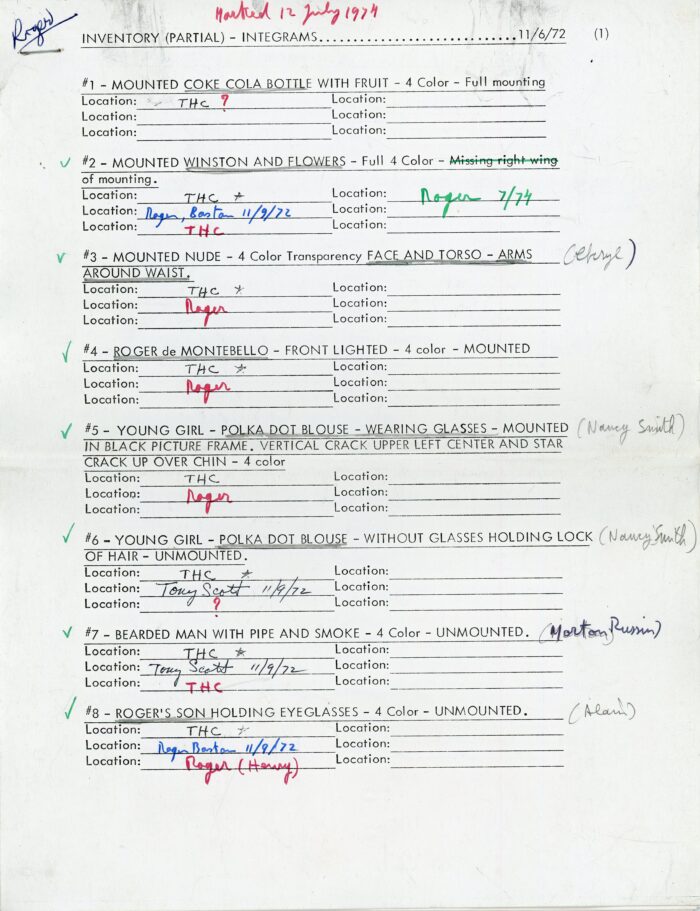 Roger
Marked 12 July 1974
INVENTORY (PARTIAL) - INTEGRAMS............................11/6/72 (1)
#1 - MOUNTED COKE COLA BOTTLE WITH FRUIT - 4 Color - Full mounting
Location: THC ? Location:
Location: Location:
Location: Location:
✓ #2 - MOUNTED WINSTON AND FLOWERS - Full 4 Color - Missing right wing
of mounting.
Location: THC * Location: Roger 7/74
Location: Roger, Boston 11/9/72 Location:
Location: THC Location:
✓ #3 - MOUNTED NUDE - 4 Color Transparency FACE AND TORSO - ARMS (Cheryl)
AROUND WAIST.
Location: THC * Location:
Location: Roger Location:
Location: Location:
✓ #4 - ROGER de MONTEBELLO - FRONT LIGHTED - 4 color - MOUNTED
Location: THC * Location:
Location: Roger Location:
Location: Location:
✓ #5 - YOUNG GIRL - POLKA DOT BLOUSE - WEARING GLASSES - MOUNTED (Nancy Smith)
IN BLACK PICTURE FRAME. VERTICAL CRACK UPPER LEFT CENTER AND STAR
CRACK UP OVER CHIN - 4 color
Location: THC Location:
Location: Roger Location:
Location: Location:
✓ #6 - YOUNG GIRL - POLKA DOT BLOUSE - WITHOUT GLASSES HOLDING LOCK (Nancy Smith)
OF HAIR - UNMOUNTED.
Location: THC * Location:
Location: Tony Scott 11/9/72 Location:
Location: ? Location:
✓ #7 - BEARDED MAN WITH PIPE AND SMOKE - 4 Color - UNMOUNTED. (Morton, Russin)
Location: THC * Location:
Location: Tony Scott 11/9/72 Location:
Location: THC Location:
✓ #8 - ROGER'S SON HOLDING EYEGLASSES - 4 Color - UNMOUNTED. (Alain)
Location: THC * Location:
Location: Roger Boston 11/9/72 Location:
Location: Roger (Henry) Location: